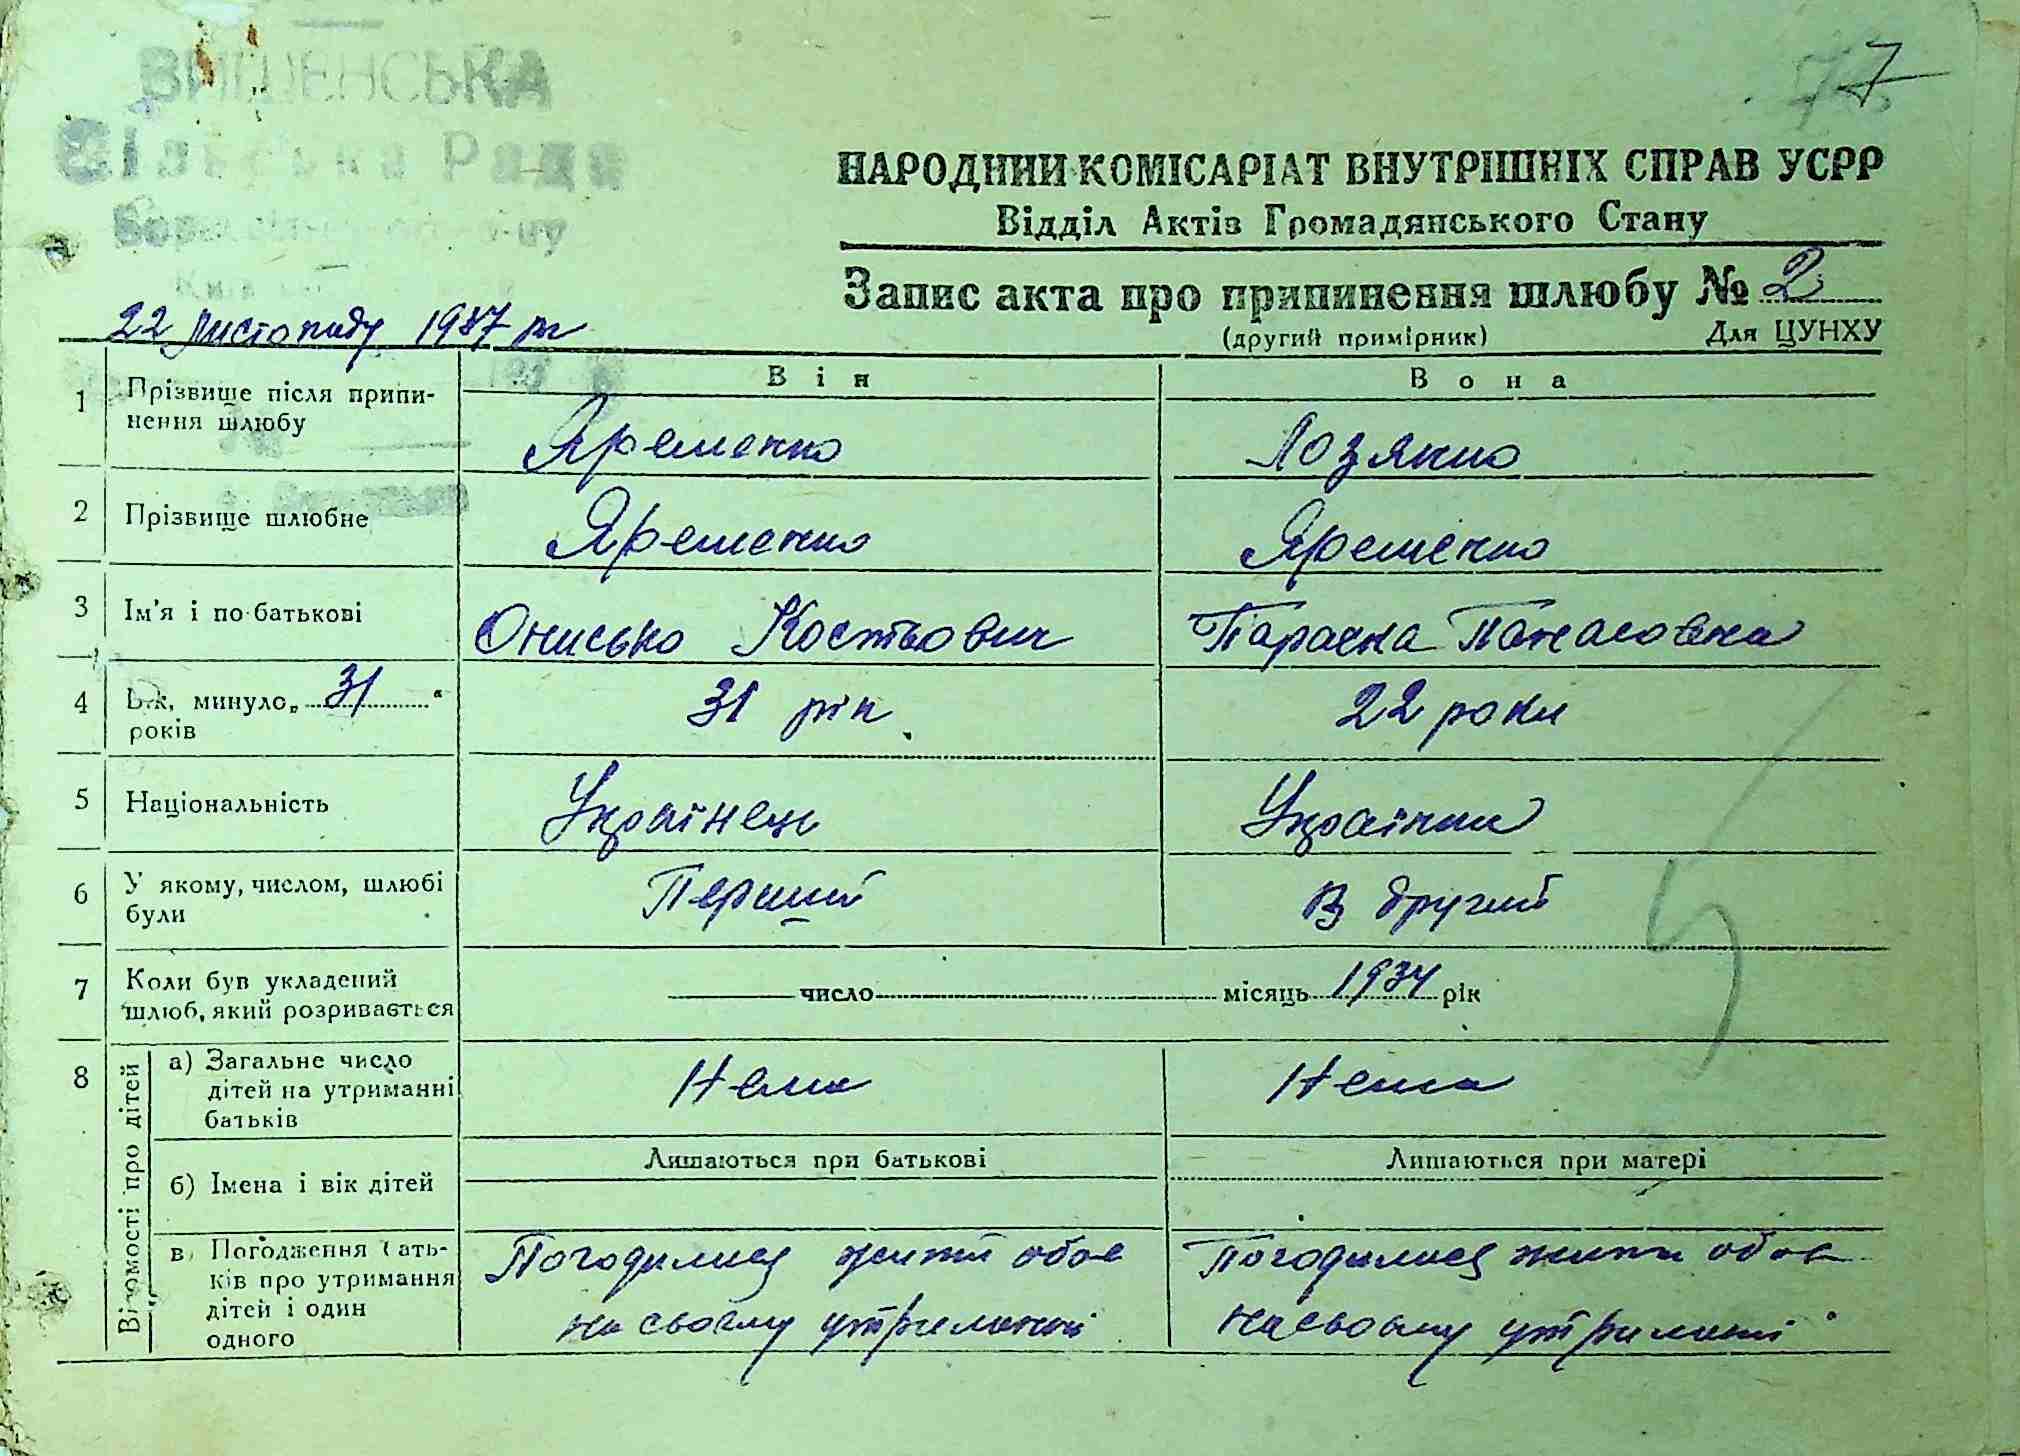 ВИШЕНСЬКА
Сільська Рада
77
7
НАРОДНИЙ КОМІСАРІАТ ВНУТРІШНІХ СПРАВ УСРР
Відділ Актів Громадянського Стану
Запис акта про припинення шлюбу № 2
(другий примірник) Для ЦУНХУ
22 листопаду 1937 р
Він Вона
1 Прізвище після припи-
нення шлюбу Яременко Лозянко
2 Прізвище шлюбне Яременко Яременко
3 Ім'я і по-батькові Онисько Костьович Параска Панасовна
4 Вік, минуло „31“
років 31 рік 22 роки
5 Національність Українець Українка
6 У якому, числом, шлюбі
були Перший В другий
7 Коли був укладений
шлюб, який розривається число місяць 1934 рік
8 Відомості про дітей
а) Загальне число
дітей на утриманні
батьків Нема Нема
Лишаються при батькові Лишаються при матері
б) Імена і вік дітей
в) Погодження бать-
ків про утримання
дітей і один
одного
Погодилися жити обоє Погодилися жити обоє
на своєму утриманні на своєму утриманні